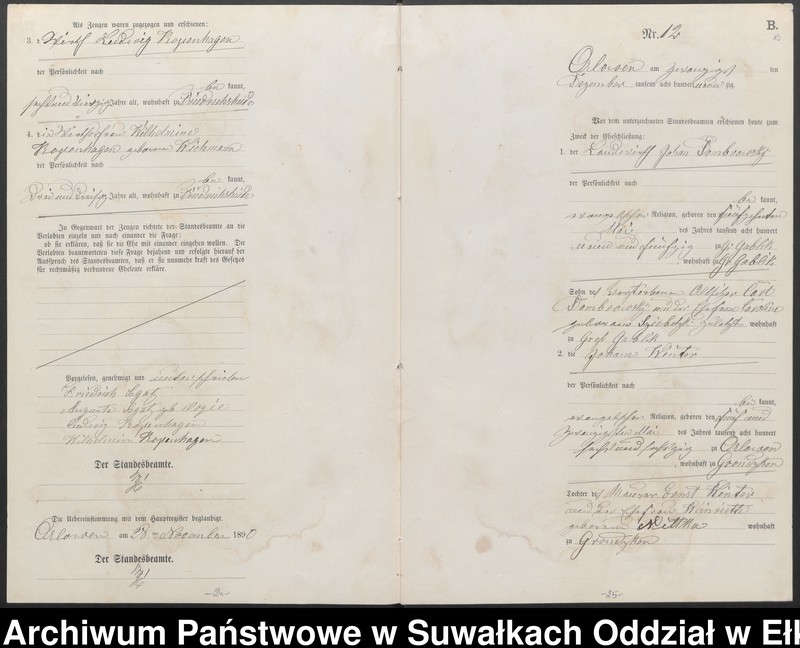 Als Zeugen waren zugezogen und erschienen:
3. Wirth Ludwig Kopenhagen
der Persönlichkeit nach
be kannt,
sechsundvierzig Jahre alt, wohnhaft zu Friedrichsheide
4. Wirthsfrau Wilhelmine
Kopenhagen geborene Wichmann
der Persönlichkeit nach
be kannt,
dreiunddreißig Jahre alt, wohnhaft zu Friedrichsheide
In Gegenwart der Zeugen richtete der Standesbeamte an die
Verlobten einzeln und nach einander die Frage:
ob sie erklären, daß sie die Ehe mit einander eingehen wollen. Die
Verlobten beantworteten diese Frage bejahend und erfolgte hierauf der
Ausspruch des Standesbeamten, daß er sie nunmehr kraft des Gesetzes
für rechtmäßig verbundene Eheleute erkläre.
Vorgelesen, genehmigt und unterschrieben
Friedrich
Auguste geb
Ludwig Kopenhagen
Wilhelmine Kopenhagen
Der Standesbeamte.
Die Uebereinstimmung mit dem Hauptregister beglaubigt.
Orlowen am 28ten November 1890
Der Standesbeamte.
B.
Nr. 12
Orlowen am zwanzigsten
Dezember tausend acht hundert neunzig.
Vor dem unterzeichneten Standesbeamten erschienen heute zum
Zweck der Eheschließung:
1. der Landwirth Johann Dombrowsky
der Persönlichkeit nach
be kannt,
evangelischer Religion, geboren den fünfzehnten
März des Jahres tausend acht hundert
neunundfünfzig zu Gr. Gablik
, wohnhaft zu Gr. Gablik
Sohn des verstorbenen Altsitzer Carl
Dombrowsky und der Ehefrau Caroline
geborene zuletzt wohnhaft
zu Groß Gablik
2. die Johanne Winter
der Persönlichkeit nach
be kannt,
evangelischer Religion, geboren den fünf und
zwanzigsten Mai des Jahres tausend acht hundert
sechsundsechzig zu Orlowen
, wohnhaft zu Gronetzken
Tochter des Maurer Ernst Winter
und der Ehefrau Henriette
geborene Nittka wohnhaft
zu Gronetzken
-24-
-25-
Archiwum Państwowe w Suwałkach Oddział w Ełk